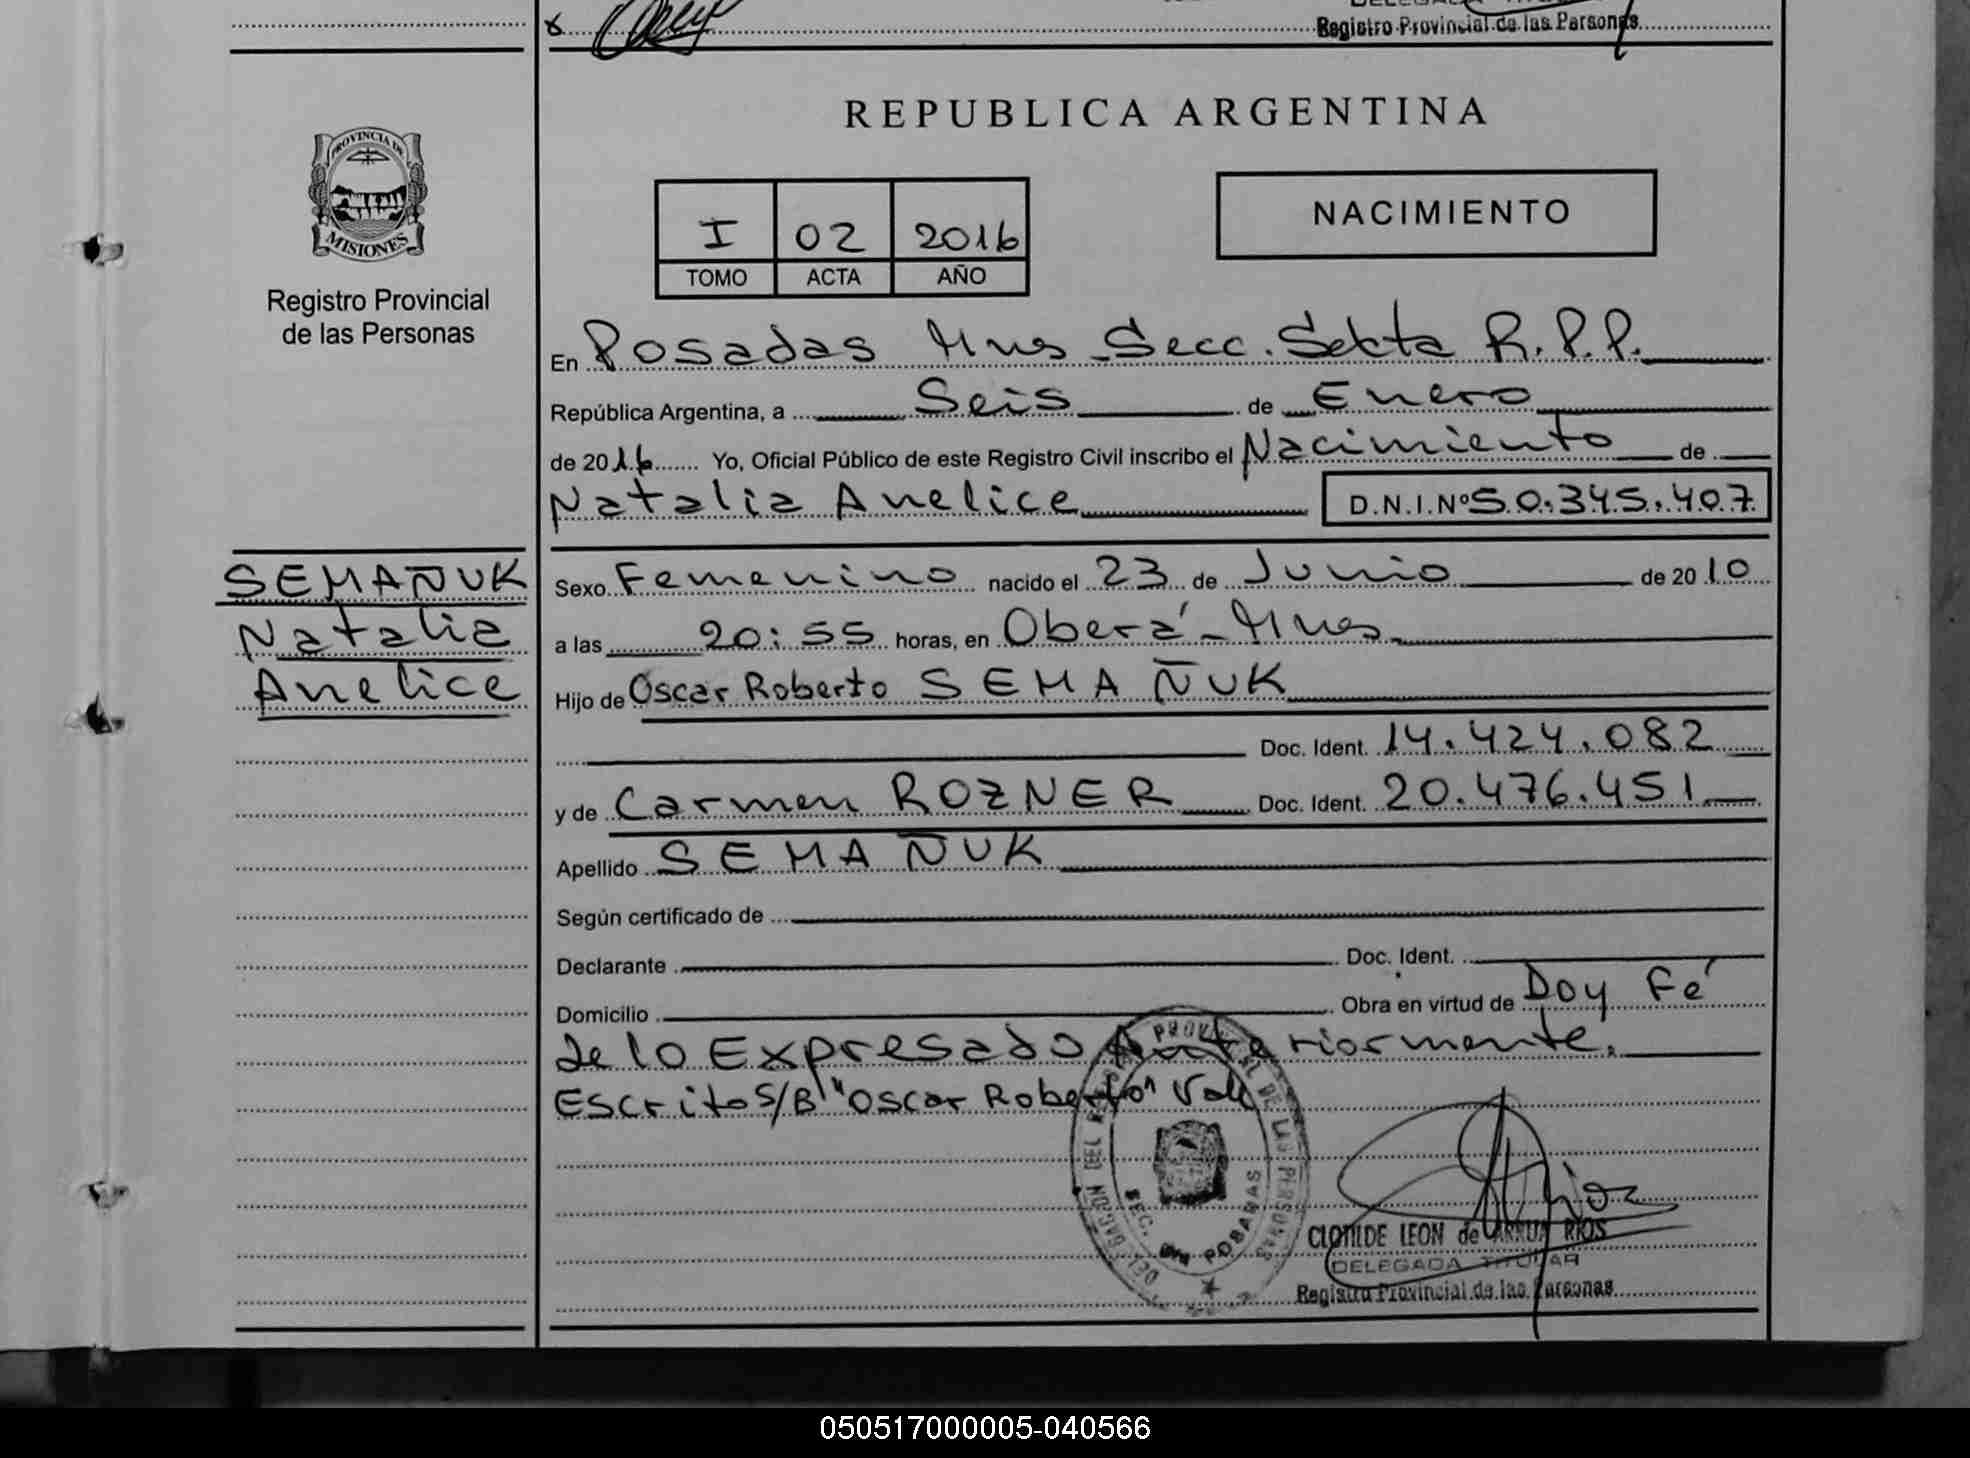 DELEGADA TITULAR
Registro Provincial de las Personas
PROVINCIA DE
MISIONES
Registro Provincial
de las Personas
REPUBLICA ARGENTINA
I 02 2016
TOMO ACTA AÑO
NACIMIENTO
En Posadas Mnes Secc. Sexta R.P.P.
República Argentina, a Seis de Enero
de 2016 Yo, Oficial Público de este Registro Civil inscribo el Nacimiento de
Natalia Anelice D.N.I.Nº 50.345.407
SEMAÑUK
Natalia
Anelice
Sexo Femenino nacido el 23 de Junio de 2010
a las 20:55 horas, en Oberá - Mnes
Hijo de Oscar Roberto SEMAÑUK
Doc. Ident. 14.424.082
y de Carmen ROZNER Doc. Ident. 20.476.451
Apellido SEMAÑUK
Según certificado de
Declarante Doc. Ident.
Domicilio Obra en virtud de Doy Fé
de lo Expresado Anteriormente.
Escrito S/B "Oscar Roberto" Vale
DELEGACION DEL REG. PROVINCIAL DE LAS PERSONAS
SEC. 6ta POSADAS
CLOTILDE LEON de ARRUA RIOS
DELEGADA TITULAR
Registro Provincial de las Personas
050517000005-040566